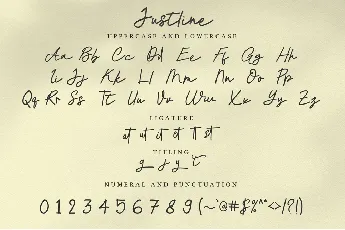 Justline
UPPERCASE AND LOWERCASE
Aa Bb Cc Dd Ee Ff Gg Hh
Ii Jj Kk Ll Mm Nn Oo Pp
Qq Rr Ss Tt Uu Vv Ww Xx Yy Zz
LIGATURE
at ut it ot tt st
TITLING
NUMERAL AND PUNCTUATION
0 1 2 3 4 5 6 7 8 9 (~`@#$%^*<>/?!)